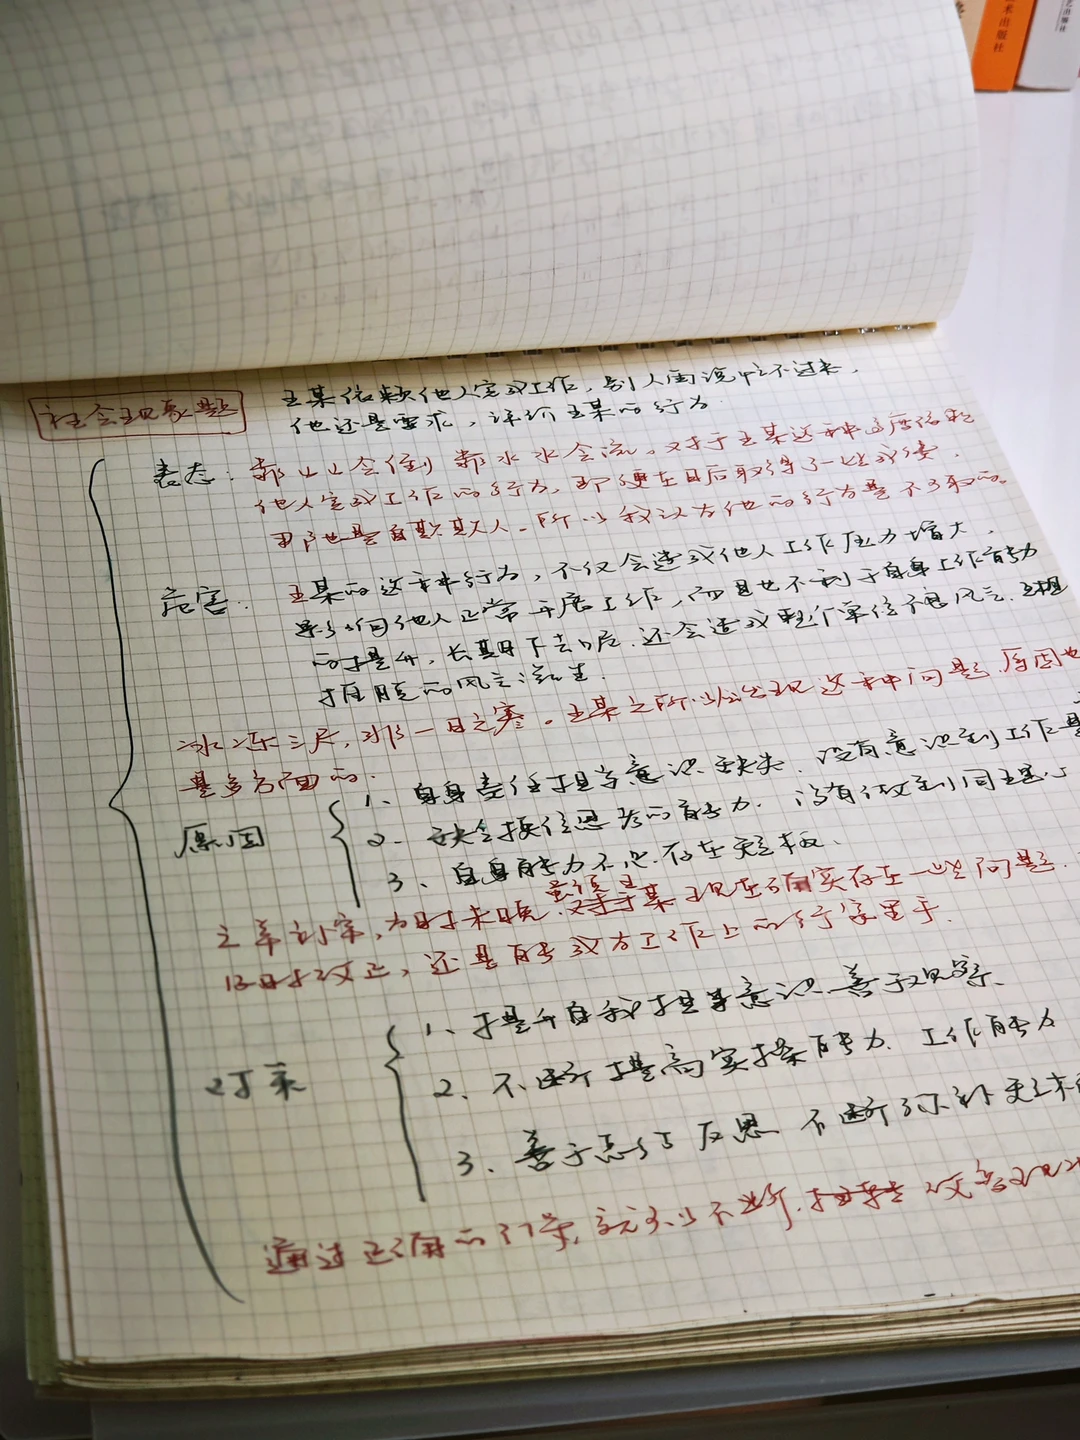 术出版社
艺出版社
社会现象题
王某依赖他人完成工作，别人因说忙不过来，
他还是要求，评价王某的行为.
表态：靠山山会倒 靠水水会流。对于王某这种过度依赖
他人完成工作的行为，即便在日后取得了一些成绩，
那也是自欺欺人。所以我认为他的行为是不可取的。
危害：王某的这种行为，不仅会造成他人工作压力增大，
影响他人正常开展工作，而且也不利于自身工作能力
的提升，长期下去呢，还会造成整个单位不思风气.互相
推脱的风气滋生.
冰冻三尺，非一日之寒。王某之所以会出现这种问题.原因也
是多方面的.
原因
1、自身责任担当意识缺失. 没有意识到工作是
2、缺乏换位思考的能力. 没有做到同理心
3、自身能力不足.存在短板.
亡羊补牢，为时未晚. 虽然王某现在确实存在一些问题.
及时改正，还是能成为工作上的行家里手.
对策
1、提升自我担当意识 善于观察.
2、不断提高实操能力、工作能力
3、善于总结反思 不断弥补短板
通过正确的引导，就可以不断 改变现状